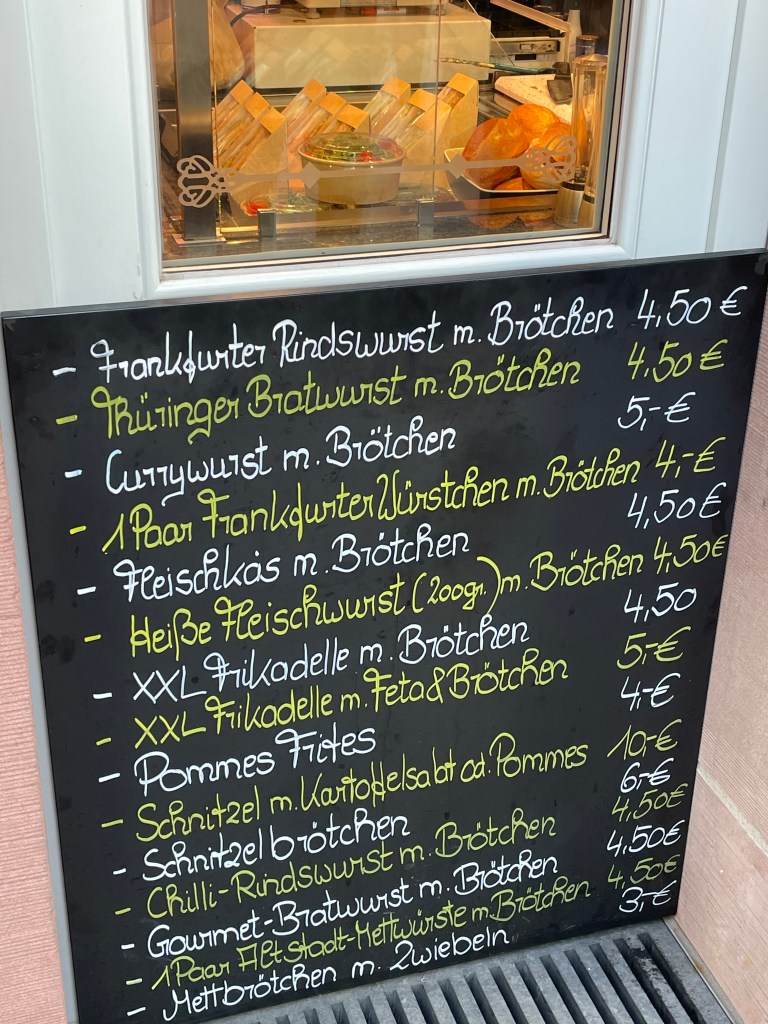 - Frankfurter Rindswurst m. Brötchen 4,50 €
- Thüringer Bratwurst m. Brötchen 4,50 €
- Currywurst m. Brötchen 5,- €
- 1 Paar Frankfurter Würstchen m. Brötchen 4,- €
- Fleischkäs m. Brötchen 4,50 €
- Heiße Fleischwurst (200gr.) m. Brötchen 4,50 €
- XXL Frikadelle m. Brötchen 4,50
- XXL Frikadelle m. Feta & Brötchen 5,- €
- Pommes Frites 4,- €
- Schnitzel m. Kartoffelsalat od. Pommes 10,- €
- Schnitzelbrötchen 6,- €
- Chilli-Rindswurst m. Brötchen 4,50 €
- Gourmet-Bratwurst m. Brötchen 4,50 €
- 1 Paar Altstadt-Mettwürste m. Brötchen 4,50 €
- Mettbrötchen m. Zwiebeln 3,- €